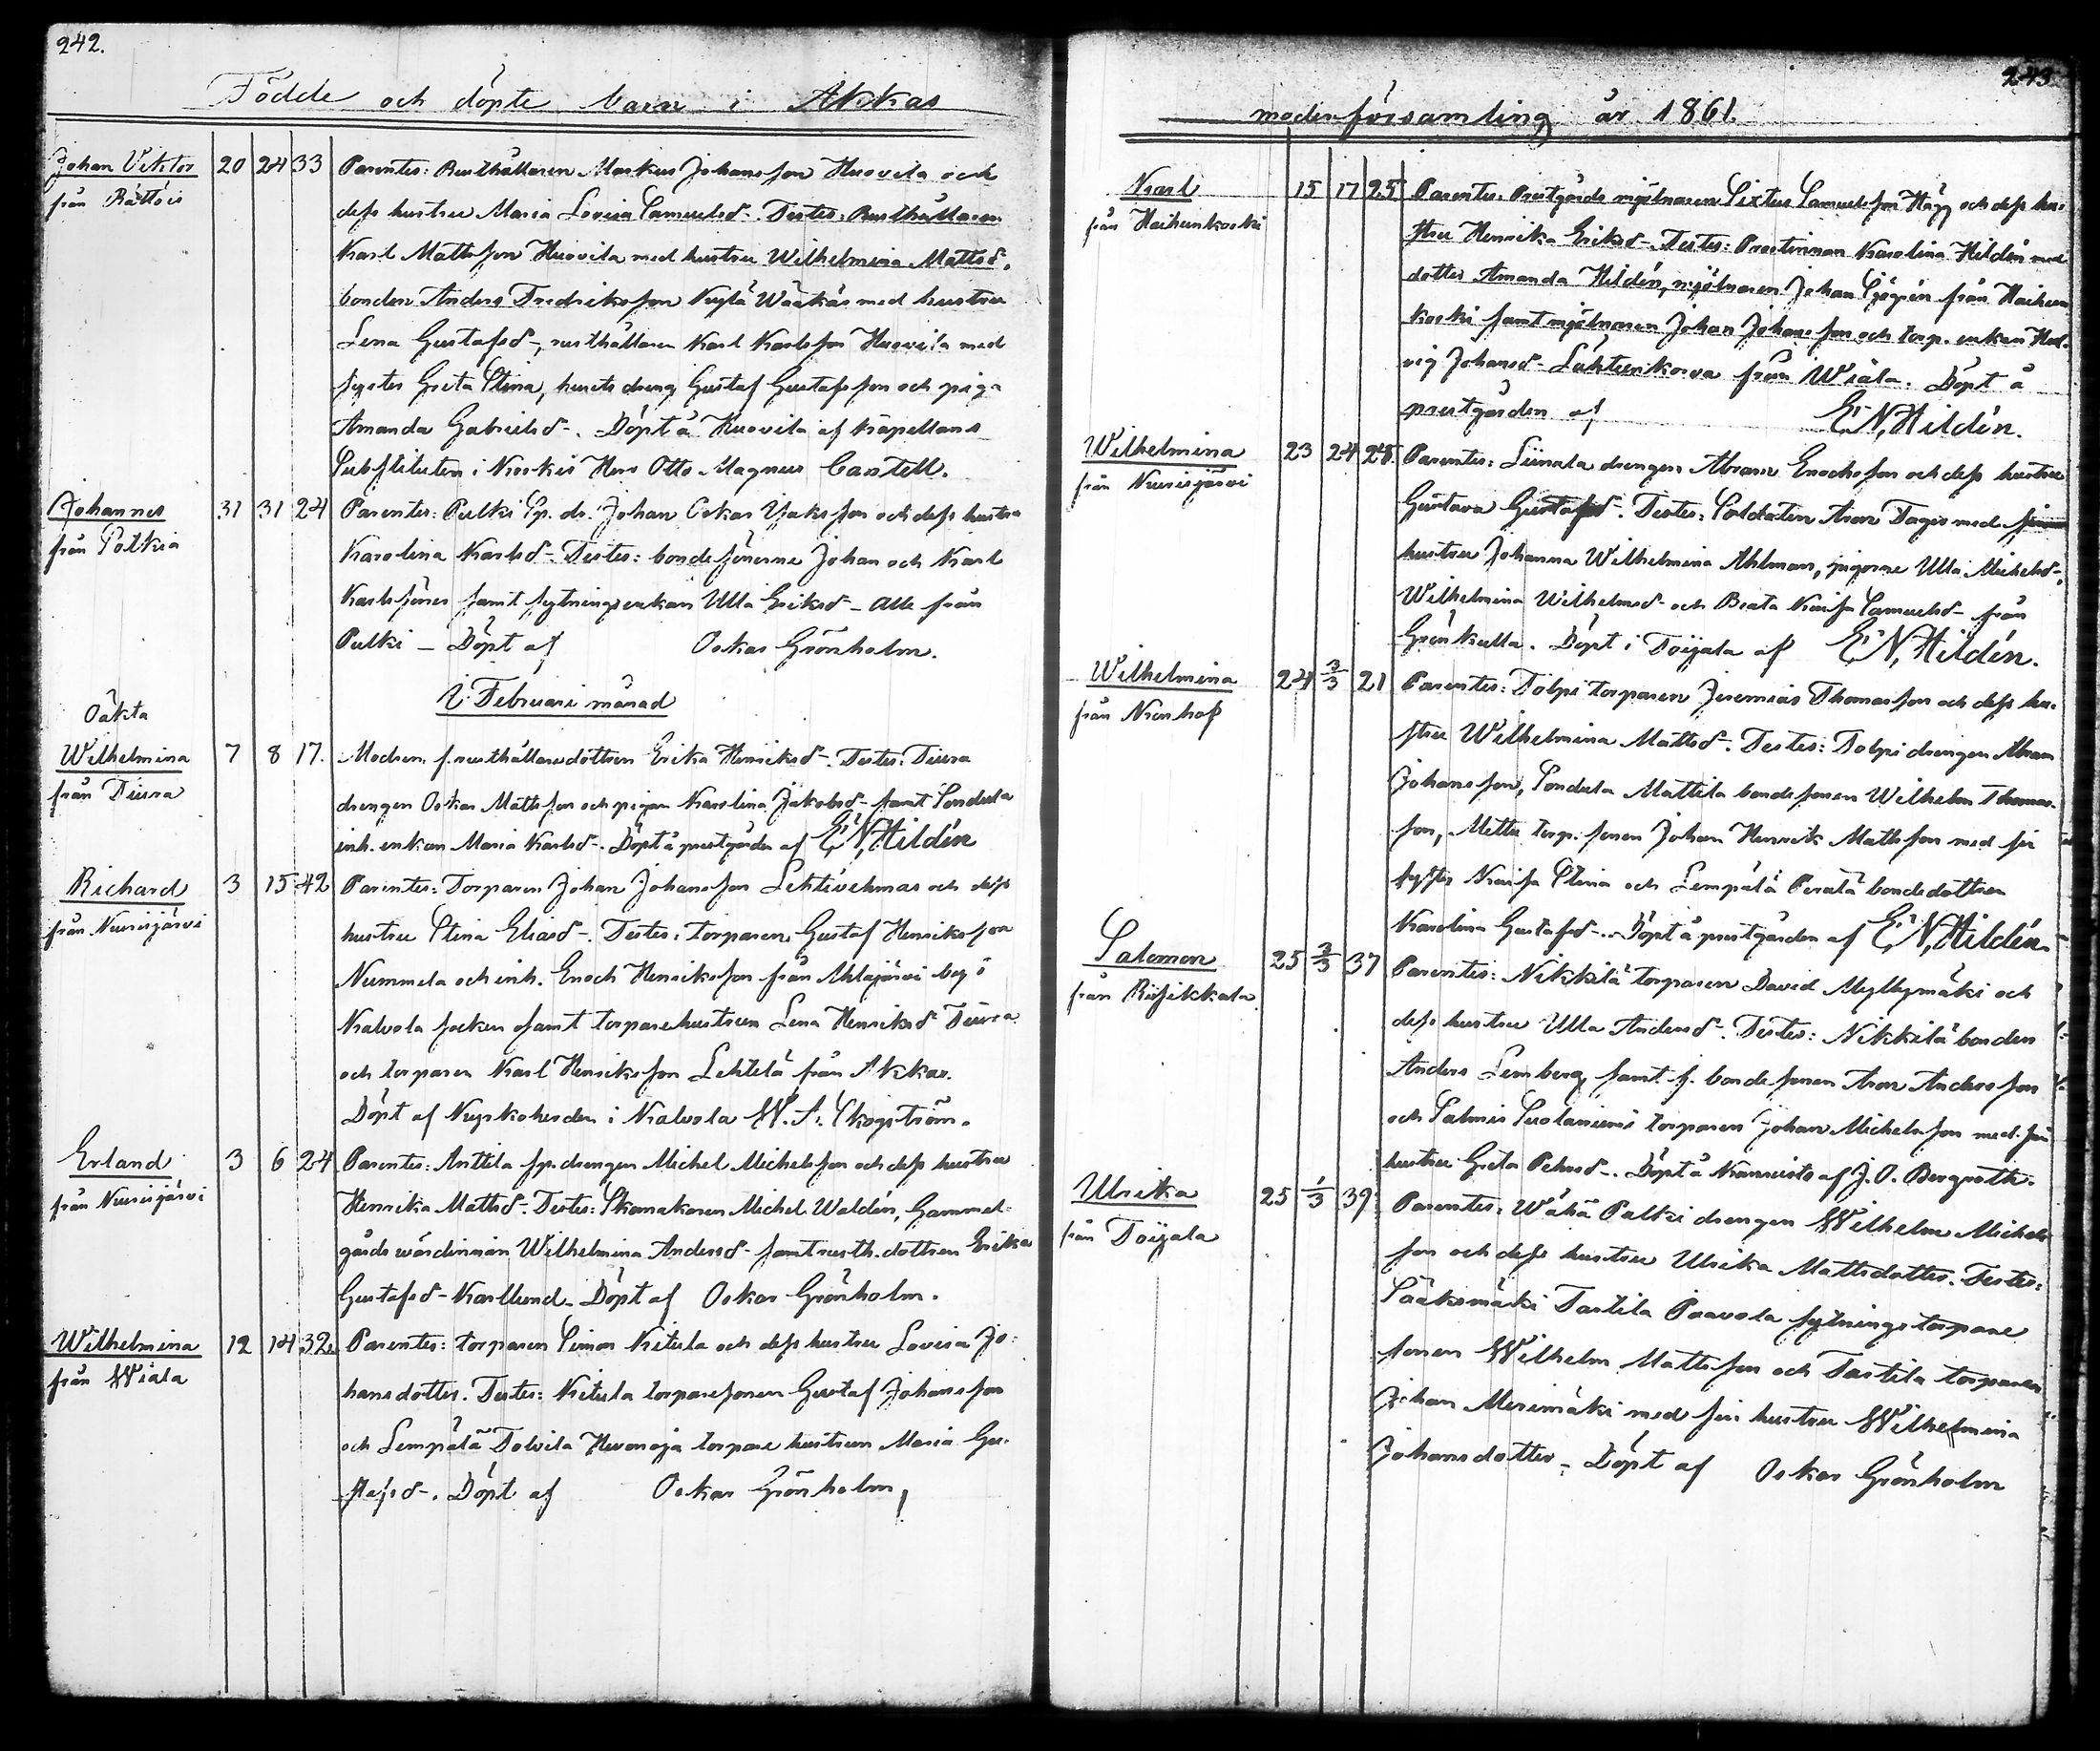 242.
Födde och döpte barn i Akkas
Johan Viktor 20 24 33 Parentes: Rusthållaren Markus Johansson Huovila och
från Rättöis dess hustru Maria Lovisa Samuelsd-. Testes: Rusthållaren
Karl Mattsson Huovila med hustru Wilhelmina Mattsd.
bonden Anders Fredriksson Wääkäs med hustru
Lena Gustafsd-, rusthållaren Karl Karlsson Huovila med
syster Greta Stina, husets dreng Gustaf Gustafsson och piga
Amanda Gabrielsd-. Döpt å Huovila af Kapellans
Substituten i Herr Otto Magnus Castell.
Johannes 31 31 24 Parentes: Pulki Sp. dr. Johan Oskar och dess hustru
från Potkia Karolina Karlsd-. Testes: bondesönerne Johan och Karl
Karlssöner samt sytningsenkan Ulla Eriksd- alle från
Pulki - Döpt af Oskar Grönholm.
I Februari månad
Oäkta
Wilhelmina 7 8 17. Modren f. rusthållaredottren Erika Henriksd-. Testes:
från drengen Oskar Mattsson och pigan Karolina Jakobsd- samt Sondula
inh. enkan Maria Karlsd-. Döpt å prestgården af E. N. Hildén
Richard 3 15 42 Parentes: Torparen Johan Johansson och dess
från Nuusijärvi hustru Stina Eliasd-. Testes: torparen Gustaf Henriksson
Nummela och inh. Enoch Henriksson från Ahlajärvi by i
Kalvola socken samt torparehustrun Lena Henriksd-
och torparen Karl Henriksson Lehtelä från Akkas.
Döpt af Kyrkoherden i Kalvola W. A. Skogström.
Erland 3 6 24 Parentes: Anttila sp. drengen Michel Michelsson och dess hustru
från Nuusijärvi Henrika Mattsd-. Testes: Skomakaren Michel Waldén, Gammel-
gårds wärdinnan Wilhelmina Andersd- samt rusth. dottren Erika
Gustafsd- Karllund. Döpt af Oskar Grönholm.
Wilhelmina 12 14 32. Parentes: torparen Simon Kitula och dess hustru Lovisa Jo-
från Wiala hansdotter. Testes: Kitula torparesonen Gustaf Johansson
och Lempälä Tolvila torpare hustrun Maria Gu-
stafsd-. Döpt af Oskar Grönholm,
243.
moderförsamling år 1861.
Karl 15 17 25 Parentes: Prestgårds mjölnaren Sixtus Samuelsson Hägg och dess hu-
från Haihunkoski stru Henrika Eriksd-. Testes: Prostinnan Karolina Hildén med
dotter Amanda Hildén, mjölnaren Johan Sjögrén från Haihun
koski samt mjölnaren Johan Johansson och torp. enkan Hed-
vig Johansd- från Wiala. Döpt å
prestgården af E. N. Hildén.
Wilhelmina 23 24 28. Parentes: Liinala drengen Abram Enochsson och dess hustru
från Nuusijärvi Gustava Gustafsd-. Testes: Soldaten Aron med
hustru Johanna Wilhelmina Ahlman, pigorna Ulla Michelsd-,
Wilhelmina Wilhelmsd- och Beata Kaisa Samuelsd- från
Grönkulla. Döpt i Toijala af E. N. Hildén.
Wilhelmina 24 3/3 21 Parentes: Tolpi torparen Jeremias Thomasson och dess hu-
från Kronhof stru Wilhelmina Mattsd-. Testes: Tolpi drengen Abram
Johansson, Sondula Mattila bondesonen Wilhelm Thomas-
son, Mettu torp. sonen Johan Henrik Mattsson med sin
syster Kaisa Stina och Lempälä Perälä bondedottren
Karolina Gustafsd-. Döpt å prestgården af E. N. Hildén.
Salomon 25 3/3 37 Parentes: Nikkilä torparen David Myllymäki och
från Riisikkala dess hustru Ulla Andersd-. Testes: Nikkilä bonden
Anders Lemberg samt f. bondesonen Aron Andersson
och torparen Johan Michelsson med sin
hustru Greta Petersd-. Döpt å af J. O. Bergroth.
Ulrika 25 1/3 39 Parentes: Wähä Palki drengen Wilhelm Michels-
från Toijala son och dess hustru Ulrika Mattsdotter. Testes:
Sääksmäki Tastila Paavola sytningstorpare
sonen Wilhelm Mattsson och Tastila torparen
Johan Merimäki med sin hustru Wilhelmina
Johansdotter - Döpt af Oskar Grönholm